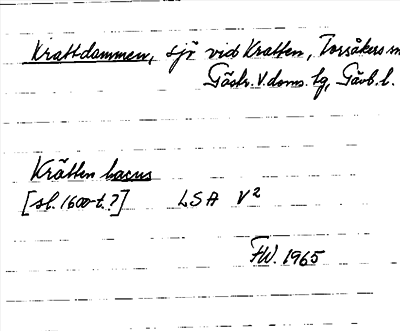 Krattdammen, sjö vid Kratten, Torsåkers
Gästr. V.doms. lg, Gävb. l.
Krätten lacus
[sl. 1600-t.?] LSA V²
FW. 1965